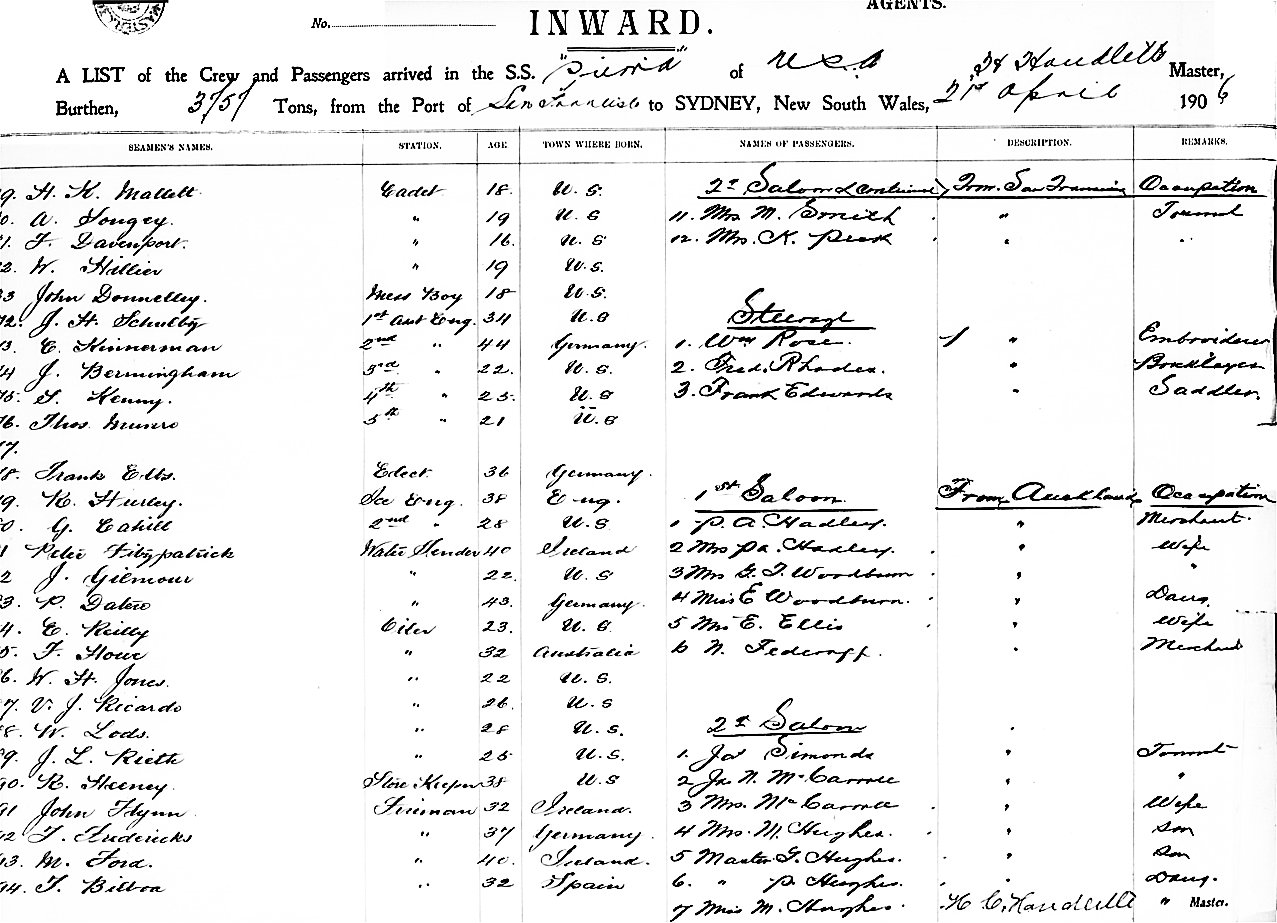 AGENTS.
No.
INWARD.
A LIST of the Crew and Passengers arrived in the S.S. "Sierra" of USA Master,
Burthen, Tons, from the Port of San Francisco to SYDNEY, New South Wales, 21st April 1906
SEAMEN'S NAMES. STATION. AGE TOWN WHERE BORN. NAMES OF PASSENGERS. DESCRIPTION. REMARKS.
9. H. K. Mallett Cadet 18. U. S. 2nd Saloon Continued From San Francisco Occupation
0. A. " 19 U. S 11. Mrs M. Smith " Tourist
1. F. Davenport. " 16. U. S 12. Mrs. K. Peek "
2. W. Hillier " 19 U. S.
3 John Donnelley. Mess Boy 18 U. S.
72. J. H. Schulby 1st Asst Eng. 34 U. S Steerage
3. E. Kinnerman 2nd " 44 Germany. 1. Wm Rose. "
4 J. Bermingham 3rd " 22. U. S. 2. Fred. Rhodes. " Bricklayer
75. Kenny. 4th " 25. U. S 3. Frank Edwards " Saddler.
76. Thos. Munro 5th " 21 U. S
7.
8. Frank Elbs. Elect. 36 Germany.
9. R. Hurley. Ice Eng. 38 Eng. 1st Saloon From Auckland Occupation
0. G. Cahill 2nd " 28 U. S 1 P. A. Hadley. " Merchant.
1 Peter Fitzpatrick Water Tender 40 Ireland 2 Mrs P.A. Hadley. " Wife
2 J. Gilmour " 22. U. S 3 Mrs G. T. Woodburn " "
3. P. " 43. Germany. 4 Miss E Woodburn. " Daug.
4. E. Reilly Oiler 23. U. S. 5 Mrs E. Ellis " Wife
5. F. " 32 Australia 6 N. " Merchant
6. W. H. Jones. " 22 U. S.
7. V. J. Ricardo " 26. U. S
8. W. Lods. " 28 U. S. 2nd Saloon
9. J. L. Rieth " 25 U. S. 1. Jas Simonds " Tourist
90. R. Heeney. Store Keeper 38 U. S 2 Jn. N. McCarroll " "
91 John Flynn Fireman 32 Ireland. 3 Mrs. McCarroll " Wife
92 F. Fredericks " 37 Germany 4 Mrs. M. Hughes. " Son
93. M. Ford. " 40. Ireland. 5 Master G. Hughes. " Son
94. Bilboa " 32 Spain 6. " P. Hughes. Daug.
7 Miss M. Hughes. " Master.